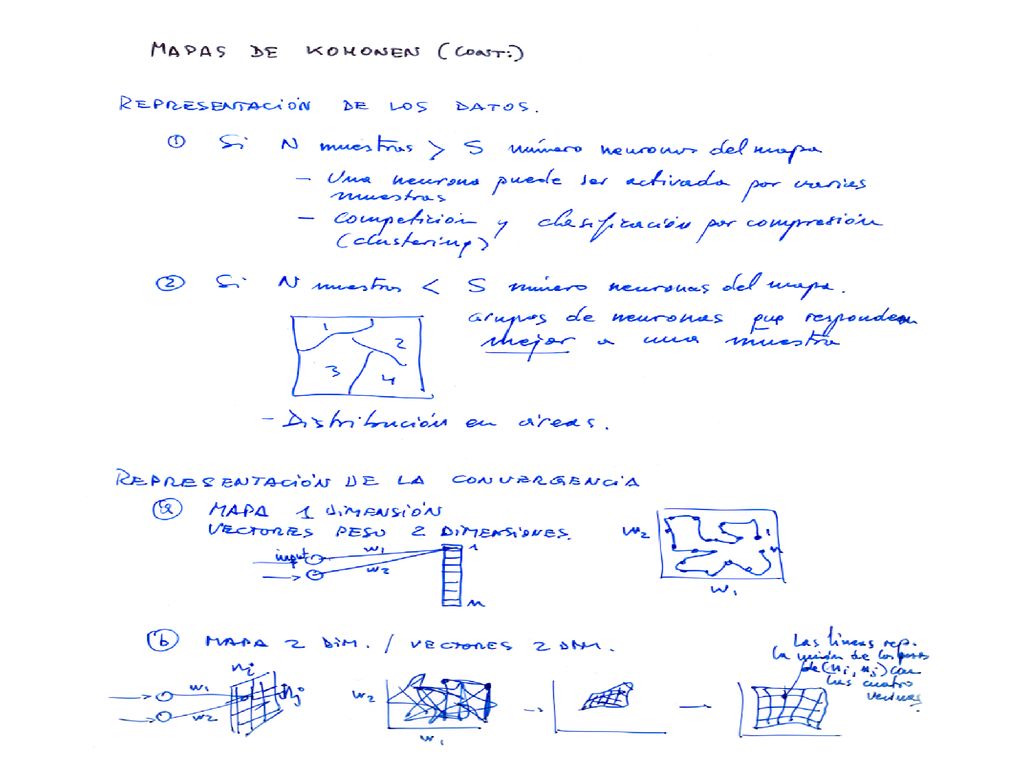 MAPAS DE KOHONEN (CONT.)
REPRESENTACIÓN DE LOS DATOS.
① Si N muestras > S número neuronas del mapa
- Una neurona puede ser activada por varias
muestras
- Competición y clasificación por compresión
(clustering)
② Si N muestras < S número neuronas del mapa.
Grupos de neuronas que responden
mejor a una muestra
1
2
3
4
- Distribución en áreas.
REPRESENTACIÓN DE LA CONVERGENCIA
ⓐ MAPA 1 DIMENSIÓN
VECTORES PESO 2 DIMENSIONES.
input
w1
w2
1
n
w2
1
n
w1
ⓑ MAPA 2 DIM. / VECTORES 2 DIM.
w1
w2
ni
nj
w2
w1
Las líneas rep.
la unión de los pesos
de (ni, nj) con
las cuatro
vecinas